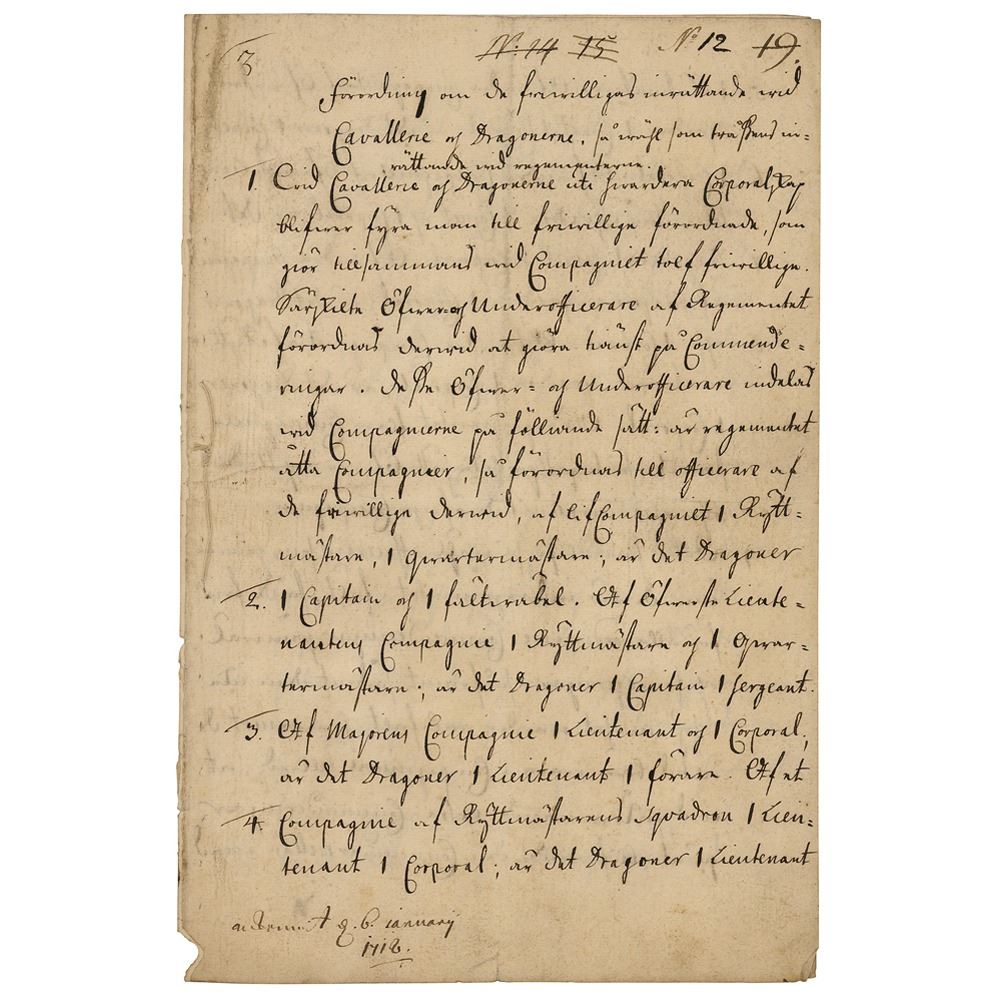 3 N. 14 15 No 12 19.
Förordning om de friwilligas inrättande wid
Cavallerie och Dragonerne, så wähl som trässens in=
rättande wid regementerne.
1. Wid Cavallerie och Dragonerne uti hwardera Corporalskap
blifwer fyra man till friwillige förordnade, som
giör tillsammans wid Compagniet tolf friwillige.
Särskilte Öfwer= och Underofficerare af Regementet
förordnas derwid at giöra tiänst på Commende=
ringar. Desse Öfwer= och Underofficerare indelas
wid Compagnierne på fölliande sätt: är regementet
åtta Compagnier, så förordnas till officerare af
de friwillige derwid, af LifCompagniet 1 Rÿtt=
mästare, 1 Qwartermästare; är det Dragoner
2. 1 Capitain och 1 fältwäbel. Af Öfwerste Lieute=
nantens Compagnie 1 Rÿttmästare och 1 Qwar=
termästare; är det Dragoner 1 Capitain 1 Sergeant.
3. Af Majorens Compagnie 1 Lieutenant och 1 Corporal;
är det Dragoner 1 Lieutenant 1 förare. Af et
4. Compagnie af Rÿttmästarens Squadron 1 Lieu=
tenant 1 Corporal; är det Dragoner 1 Lieutenant
d. 6. january
1718.